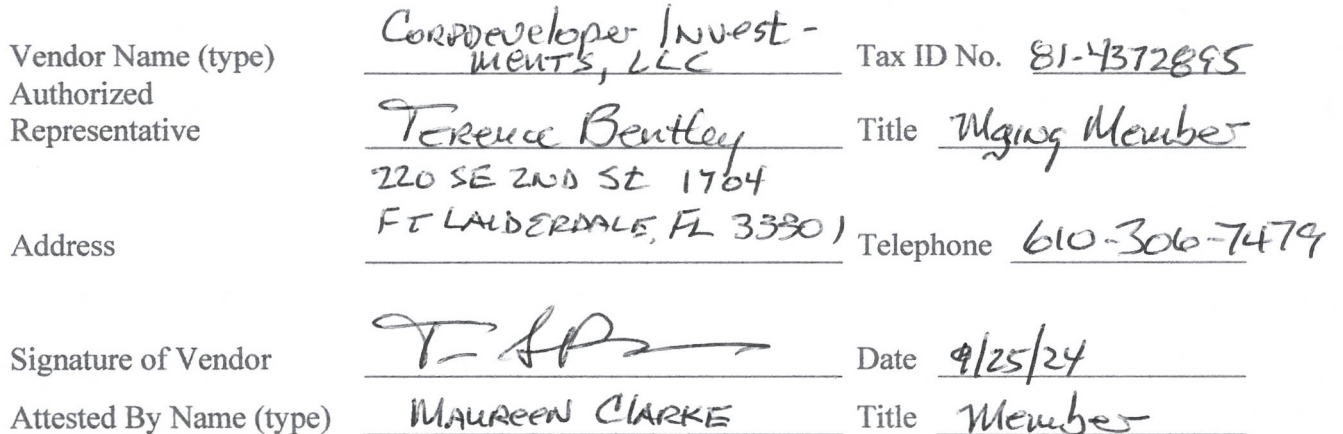 Vendor Name (type) CorpDeveloper Invest-
ments, LLC Tax ID No. 81-4372895
Authorized
Representative Terence Bentley Title Mging Member
220 SE 2ND St 1704
Address FT LAUDERDALE, FL 33301 Telephone 610-306-7479
Signature of Vendor Date 9/25/24
Attested By Name (type) MAUREEN CLARKE Title Member